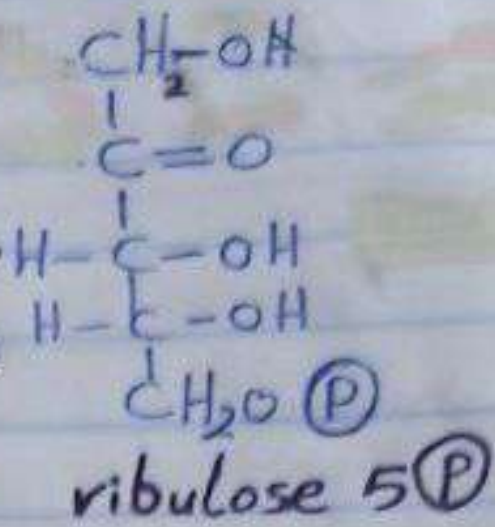 CH2-OH
C=O
H-C-OH
H-C-OH
CH2O P
ribulose 5 P